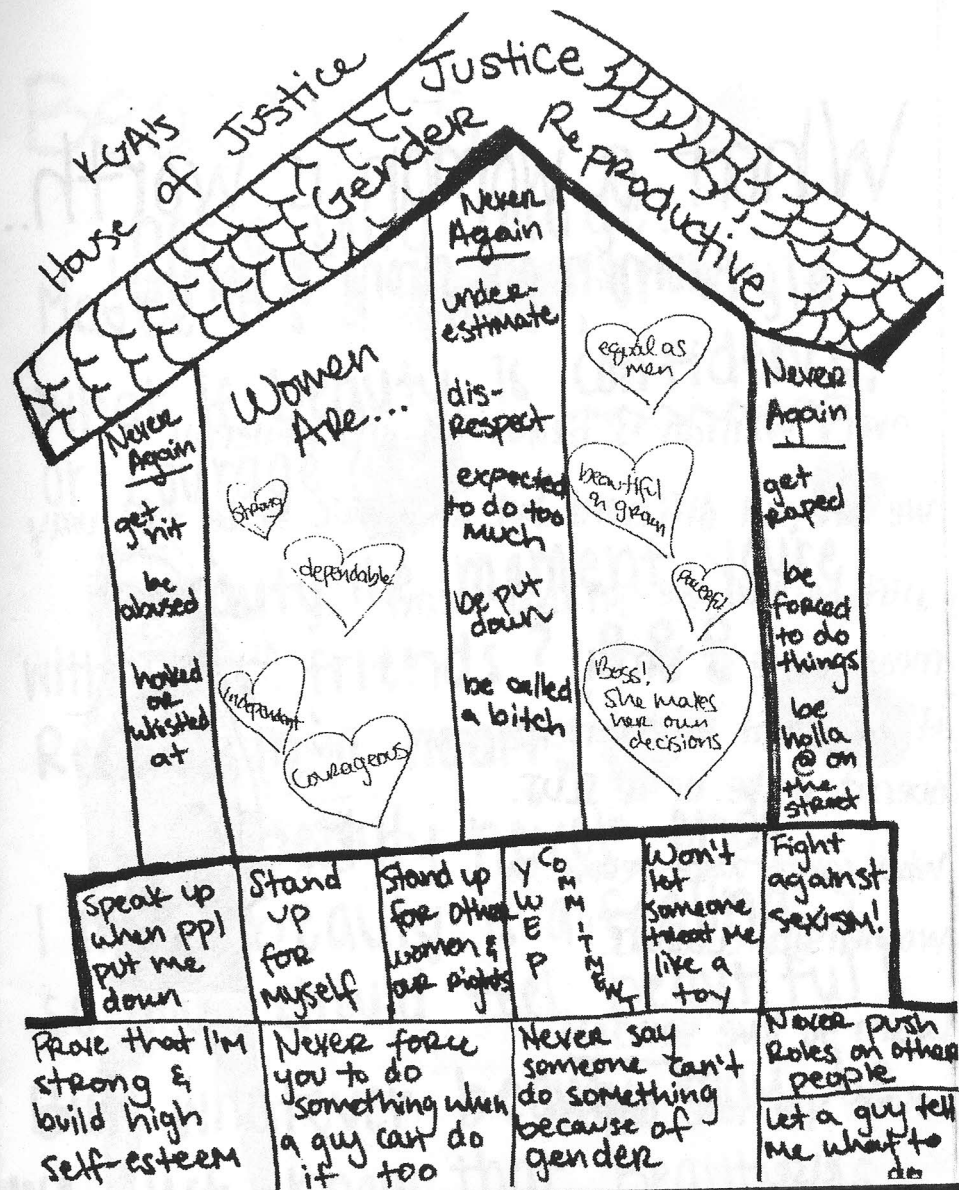 KGA's
House of Justice
Justice
Gender
Reproductive
Never
Again
get
hit
be
abused
honked
or
whistled
at
Women
Are...
strong
dependable
Independent
Courageous
Never
Again
under-
estimate
dis-
respect
expected
to do too
much
be put
down
be called
a bitch
equal as
men
beautiful
peaceful
Boss!
She makes
her own
decisions
Never
Again
get
raped
be
forced
to do
things
be
holla
@ on
the
street
speak up
when ppl
put me
down
Stand
up
for
myself
Stand up
for other
women &
our rights
YWEP
COMMITMENT
Won't
let
someone
treat me
like a
toy
Fight
against
sexism!
Prove that I'm
strong &
build high
self-esteem
Never force
you to do
something when
a guy can't do
it too
Never say
someone can't
do something
because of
gender
Never push
Roles on other
people
Let a guy tell
me what to
do